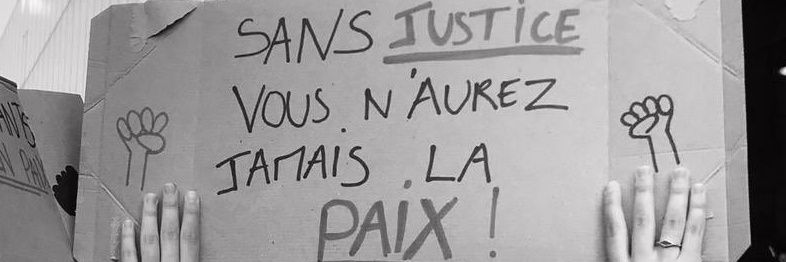 SANS JUSTICE
VOUS N'AUREZ
JAMAIS LA
PAIX !